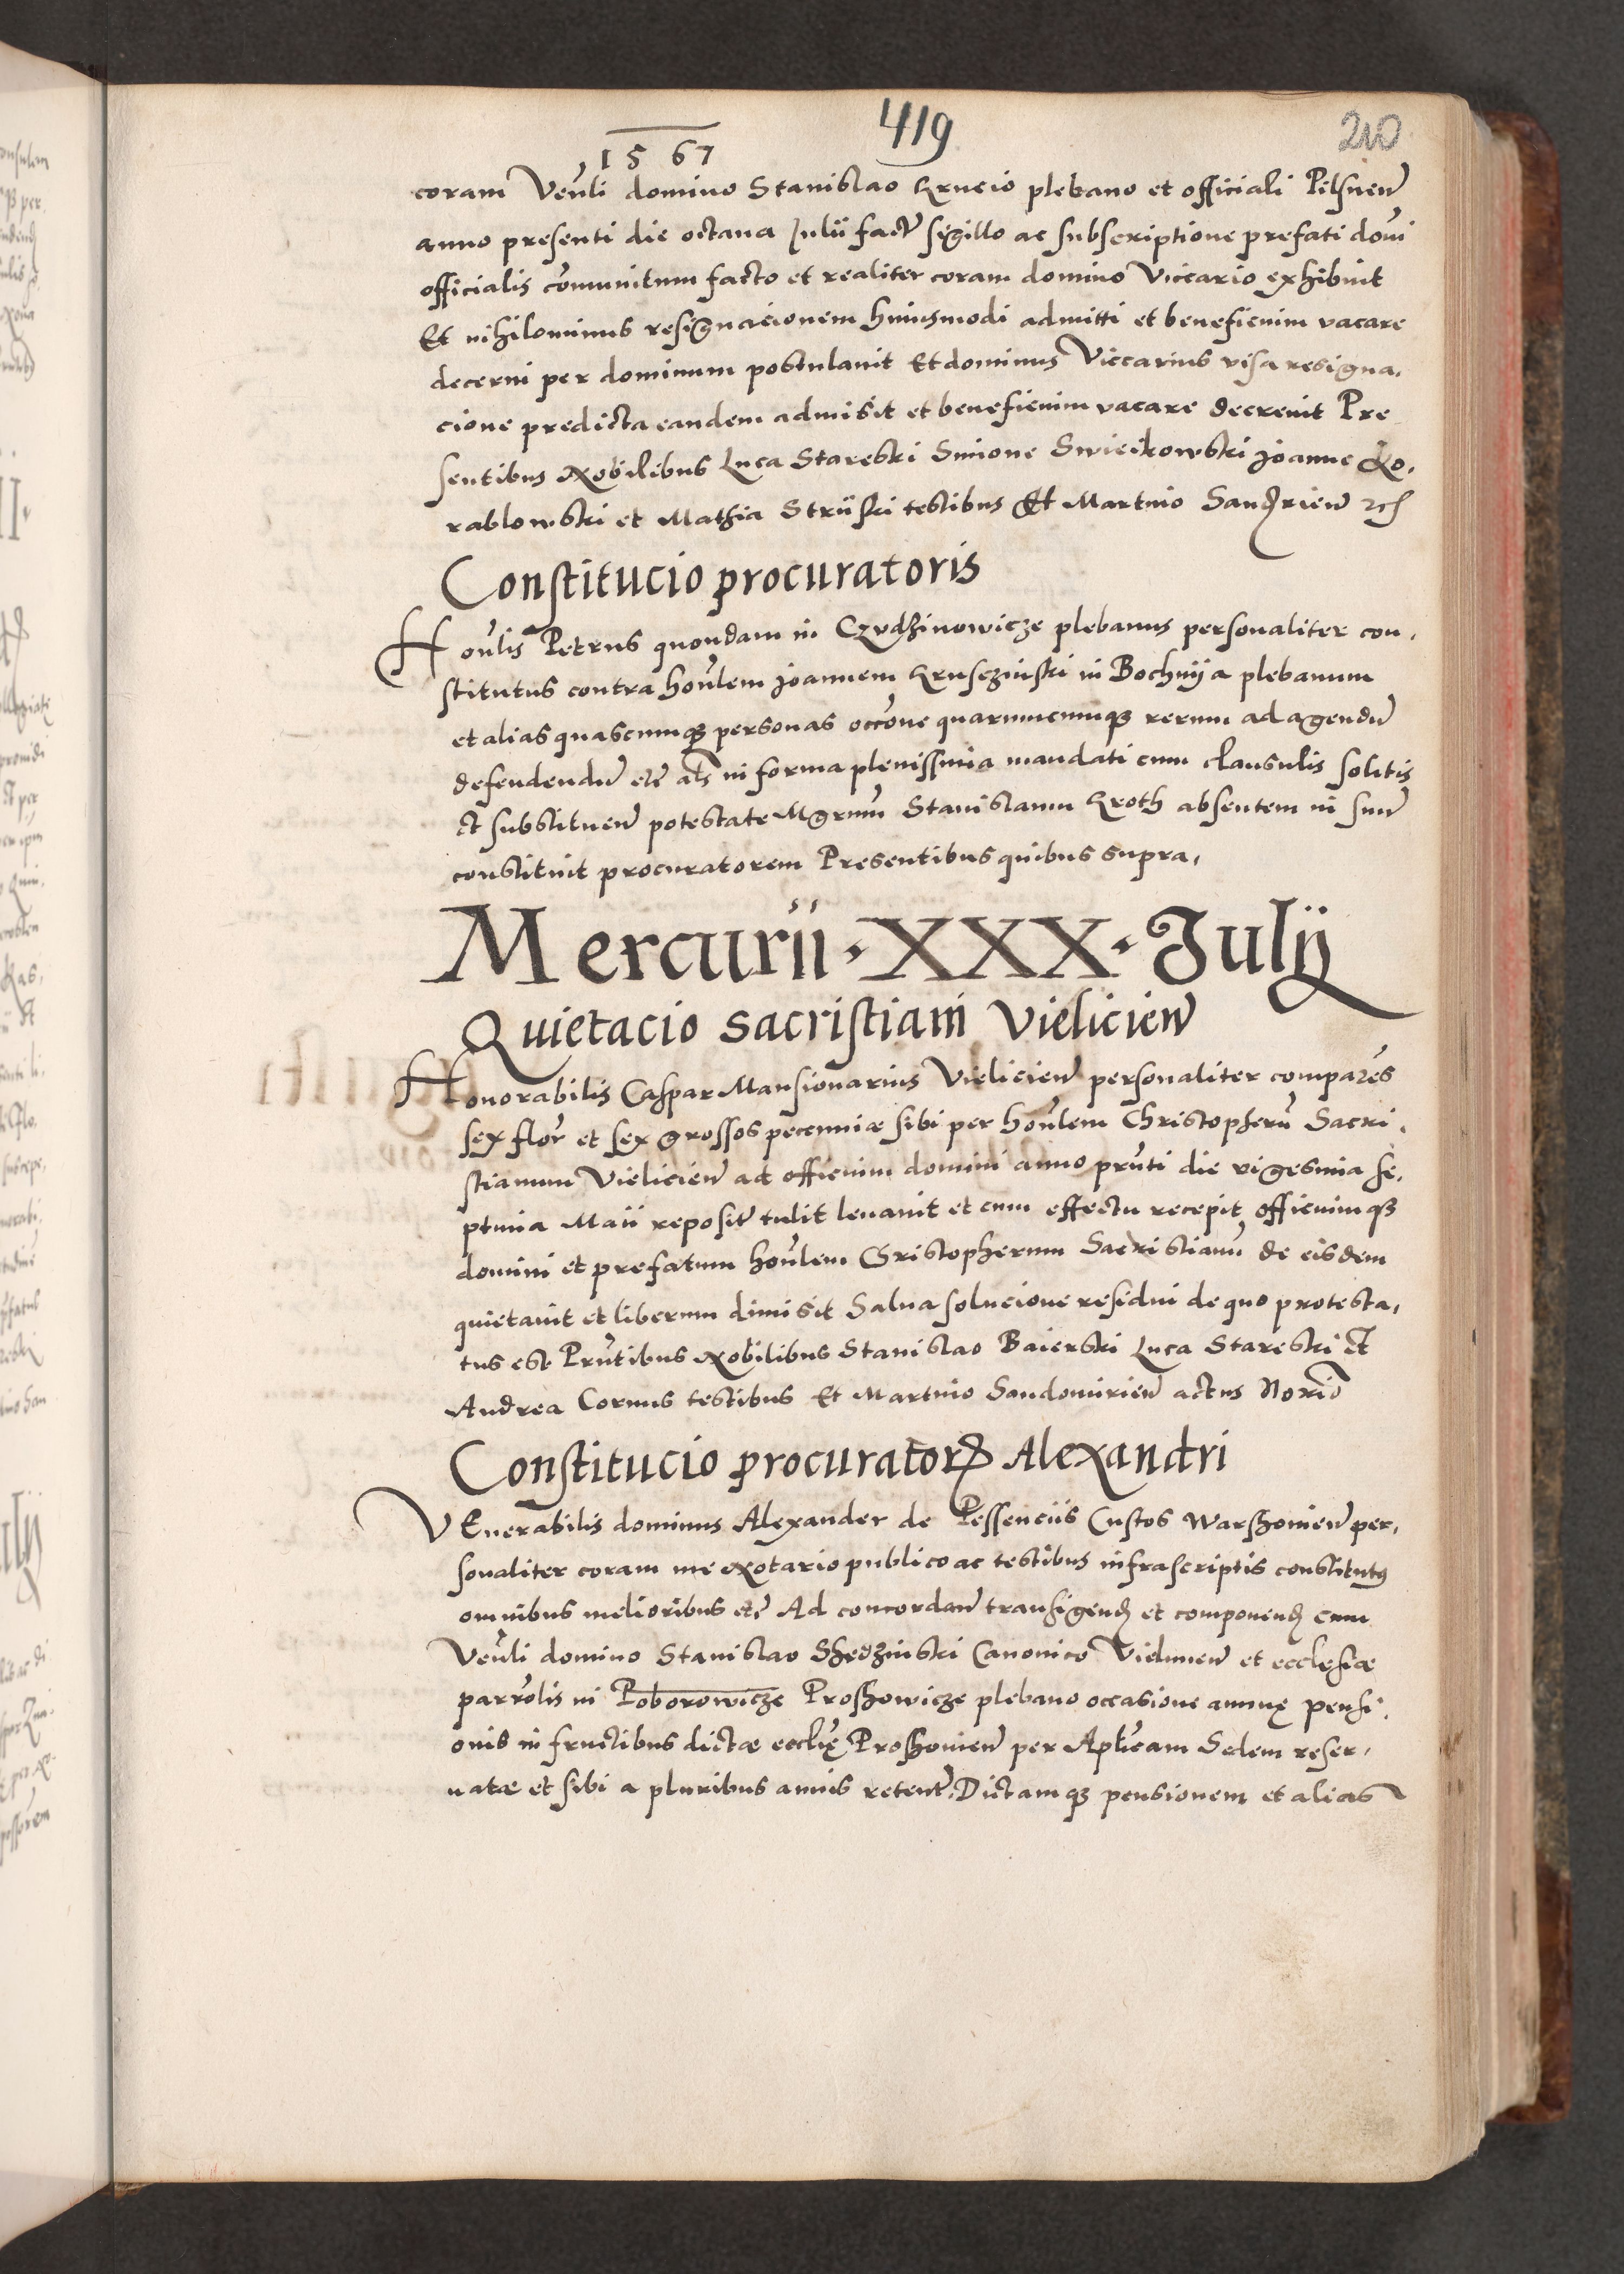 419
210
1567
coram Venli domino Stanislao Krucio plebano et officiali Pilsnen
anno presenti die octaua Julii fact sigillo ac subscriptione prefati domi
officialis communitum facto et realiter coram domino Viccario exhibuit
Et nihilominus resignacionem huiusmodi admitti et beneficium vacare
decerni per dominum postulauit Et dominus Viccarius visa resigna,
cione predicta eandem admisit et beneficium vacare decreuit Pre
sentibus Nobilibus Luca Stareski Simone Swiecikowski Joanne Ko,
rablowski et Mathia Struski testibus Et Martino Sandrien
Constitucio procuratoris
Honlis Petrus quondam in Czudzinowicze plebanus personaliter con,
stitutus contra honlem Joannem Krusczinski in Bochnya plebanum
et alias quascumq personas occone quarumcumq rerum ad agendu
defendendu etc als in forma plenissima mandati cum clausulis solitis
et substituen potestate Mgrum Stanislaum Kroth absentem in suu
constituit procuratorem Presentibus quibus supra,
Mercurii · XXX · Julij
Quietacio Sacristiani Vielicien
Honorabilis Caspar Mansionarius Vielicien personaliter compares
sex flor et sex grossos pecuniæ sibi per honlem Christopheru Sacri,
stianum Vielicien ad officium domini anno prnti die vigesima se,
ptima Maii reposit tulit leuauit et cum effectu recepit officiumq
domini et prefatum honlem Christopherum Sacristianu de eisdem
quietauit et liberum dimisit Salua solucione residui de quo protesta,
tus est Prntibus Nobilibus Stanislao Baierski Luca Stareski et
Andrea Cornus testibus Et Martino Sandomirien actus Norio
Constitucio procurator Alexandri
VEnerabilis dominus Alexander de Pessenciis Custos Warschouien per,
sonaliter coram me Notario publico ac testibus infrascriptis constitutus
omnibus melioribus etc Ad concordan transigend et componend cum
Venli domino Stanislao Shedzinski Canonico Vielunen et ecclesiæ
parrolis in Poborowicze Proshowicze plebano occasione annuę pensi,
onis in fructibus dictæ ecclię Proshouien per Aplicam Sedem reser,
uatæ et sibi a pluribus annis retent, Dictamq pensionem et alias